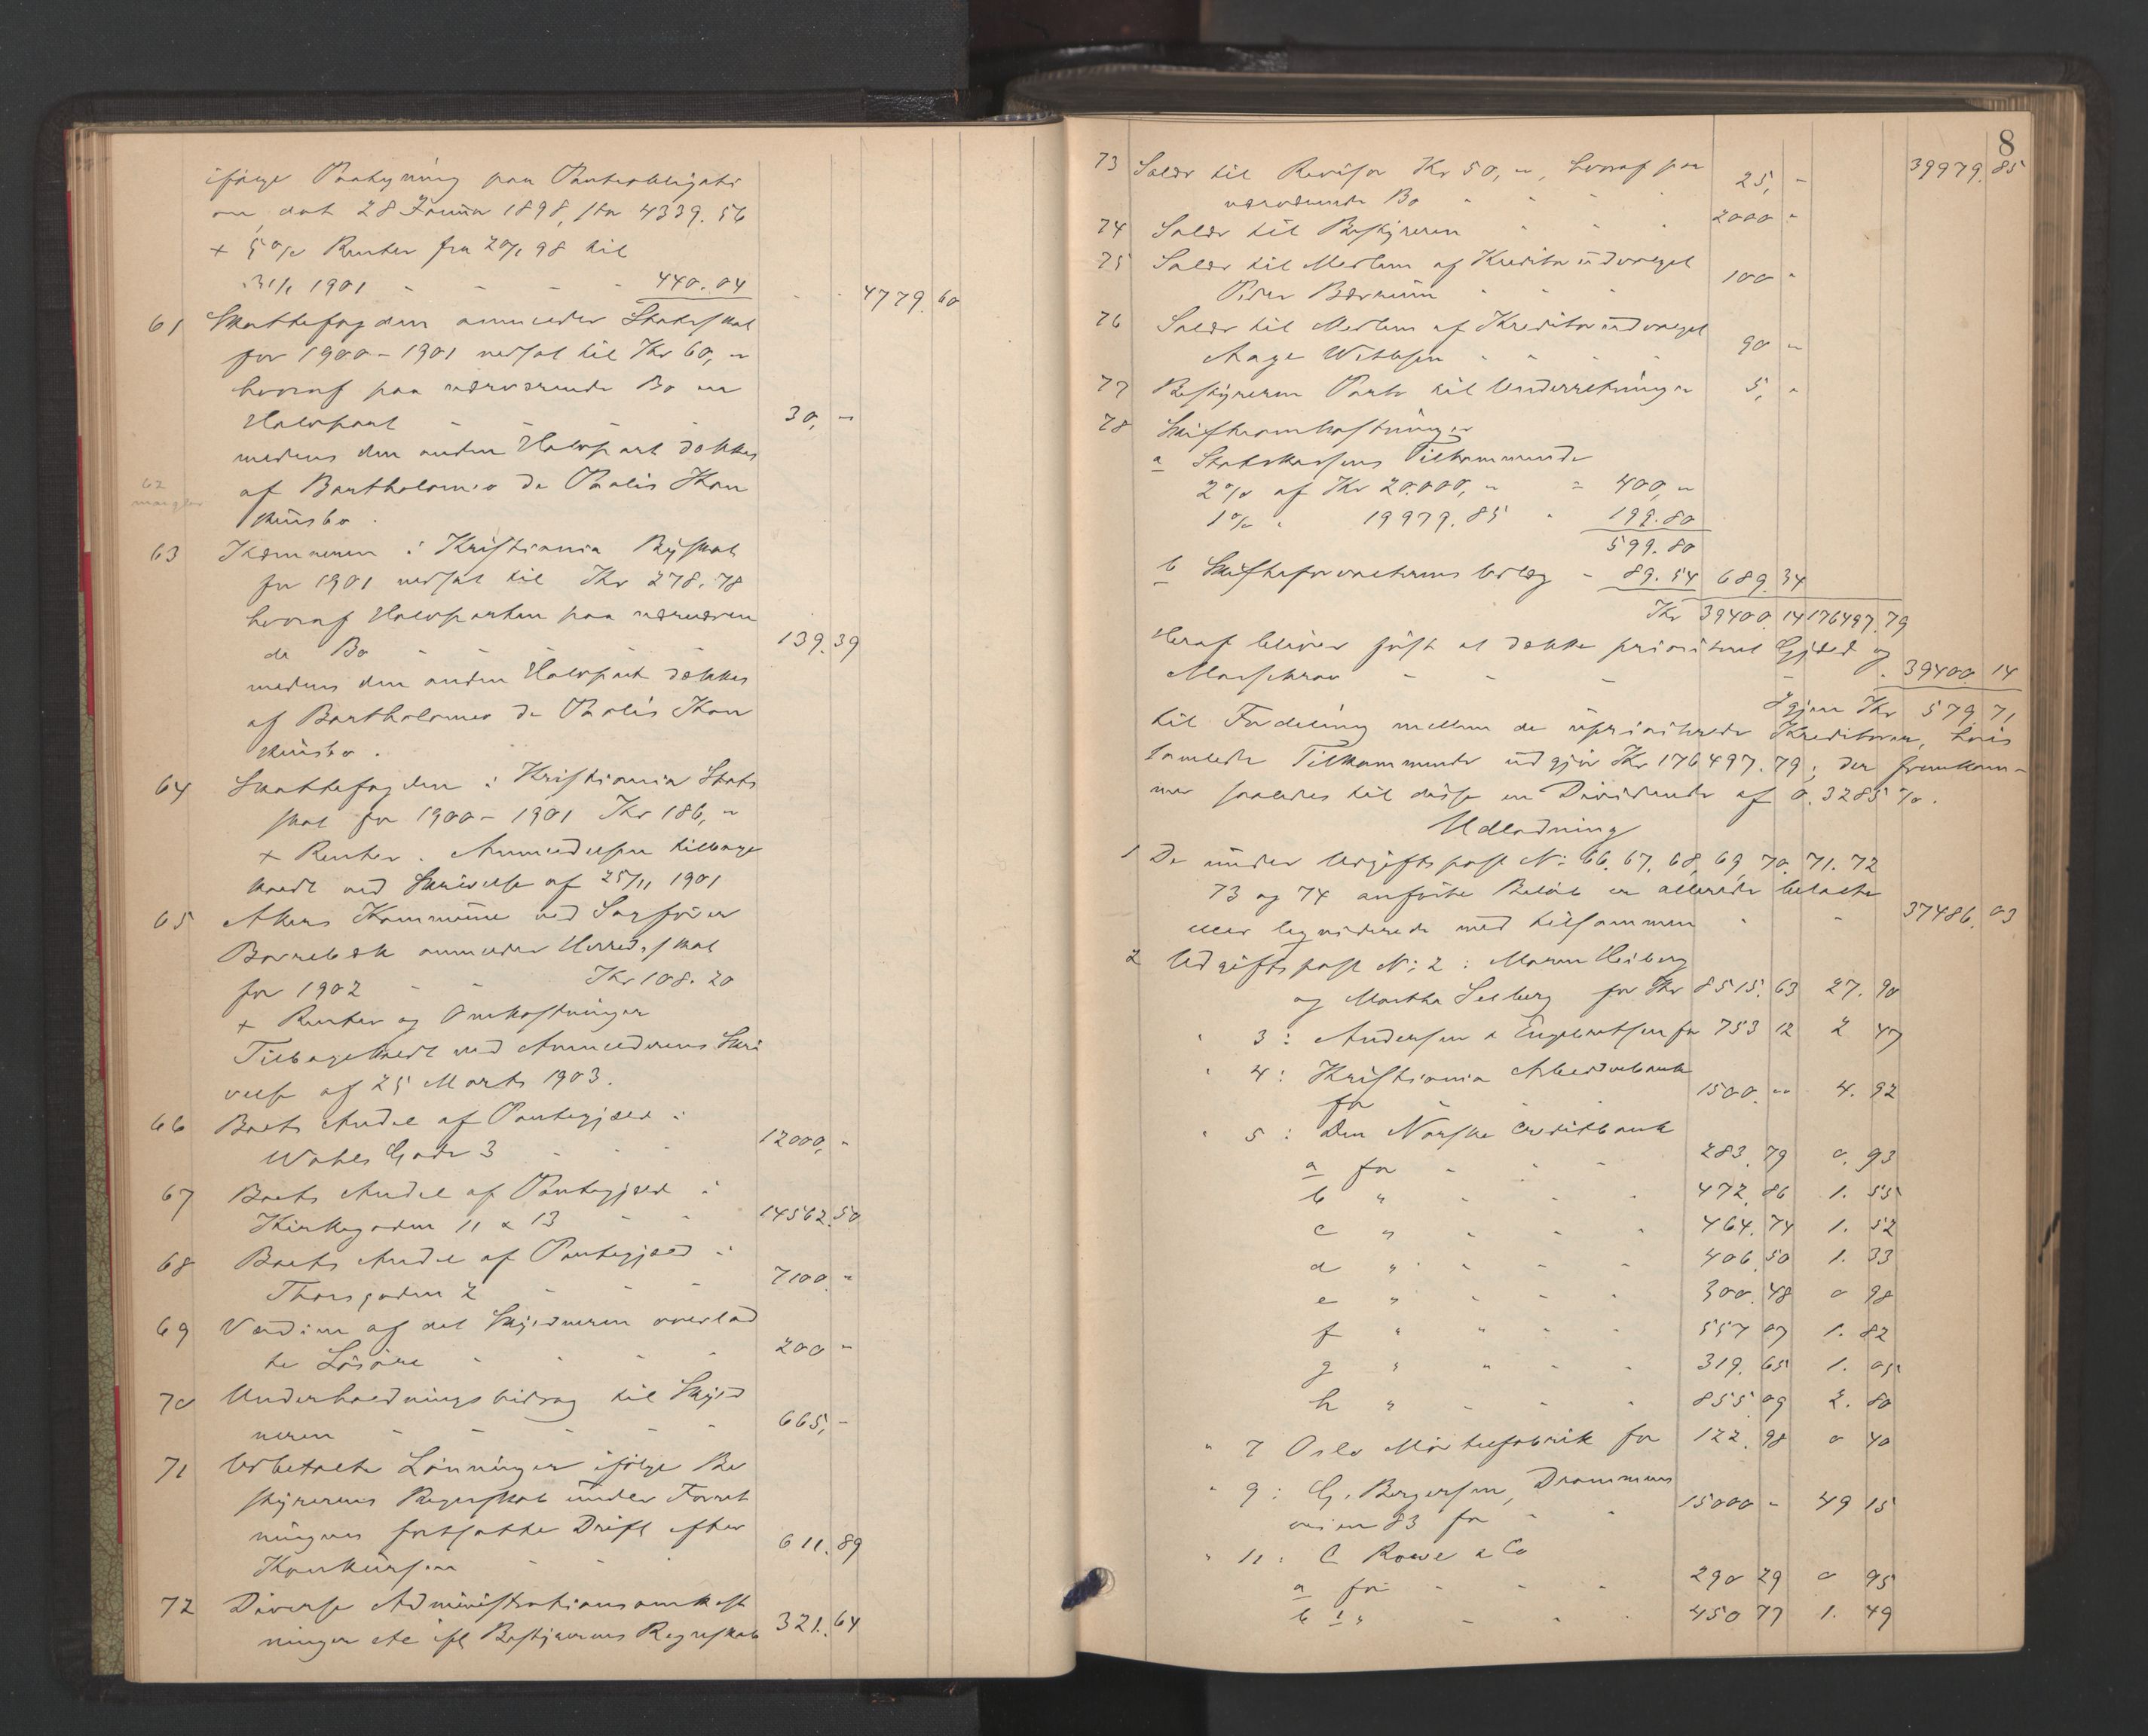 ifølge Paategning paa Panteobligati
on dat 28 Januar 1898, stor 4339.56
+ 5% Renter fra 20/1 98 til
31/1 1901 - - - 440.04 - - 4779.60
61 Skattefogden anmelder Statsskat
for 1900-1901 nedsat til Kr 60,"
hvoraf paa nærværende Bo en
Halvpart - - - 30,"
medens den anden Halvpart dækkes
af Bartholomeo de Paolis Kon
kursbo.
62
mangler
63 Kæmneren i Kristiania Byskat
for 1901 nedsat til Kr 278.78
hvoraf Halvparten paa nærværen
de Bo - - - - 139.39
medens den anden Halvpart dækkes
af Bartholomeo de Paolis Kon
kursbo.
64 Skattefogden i Kristiania Stats
skat for 1900-1901 Kr 186,"
+ Renter. Anmeldelsen tilbage
kaldt ved Skrivelse af 25/11 1901
65 Akers Kommune ved Sagfører
anmelder Herredsskat
for 1902 - - Kr 108.20
+ Renter og Omkostninger
Tilbagekaldt ved Anmelderens Skri
velse af 25 Marts 1903.
66 Boets Andel af Pantegjæld i
Gade 3 - - - 12000,"
67 Boets Andel af Pantegjæld i
Kirkegaden 11 & 13 - - 14562.50
68 Boets Andel af Pantegjæld i
Thorsgaden 2 - - - 7100."
69 Værdien af det Skyldneren overlad
te Løsøre - - - - 200"
70 Underholdningsbidrag til Skyld
neren - - - - 665,-
71 Udbetalte Lønninger ifølge Be
styrerens Regnskab under Forret
ningens fortsatte Drift efter
Konkursen - - - 611.89
72 Diverse Administrationsomkost
ninger etc ifl Bestyrerens Regnskab 321.64
8
73 Salær til Revisor Kr 50,", hvoraf paa 39979.85
nærværende Bo - - - - 25,-
74 Salær til Bestyreren - - - 2000"
75 Salær til Medlem af Kreditorudvalget
Peder - - - 100"
76 Salær til Medlem af Kreditorudvalget
Aage - - - - 90"
77 Bestyrerens Porto til Underretninger 5,"
78 Skifteomkostninger
a Statskassens Tilkommende
2% af Kr 20.000," = 400,"
1% " 19979.85 - 199.80
599.80
b Skifteforvalterens Udlæg - 89.54 689.34
Kr 39400.14 176497.79
Heraf bliver først at dække prioriteret Gjæld og
Massekrav - - - - 39400.14
Igjen Kr 579.71
til Fordeling mellem de uprioriterede Kreditorer, hvis
samlede Tilkommende udgjør Kr 176497.79; der fremkom-
mer saaledes til disse en Dividende af 0.3285%.
Udlodning
1 De under Udgiftspost No: 66, 67, 68, 69, 70, 71, 72
73 og 74 anførte Beløb er allerede betalte
eller liqviderede med tilsammen - - 37486.03
2 Udgiftspost No: 2: Maren Heiberg
og Martha Seeberg for Kr 8515.63 27.90
" 3: Andersen & Engebretsen for 753 12 2 47
" 4: Kristiania Arbeiderbank
for - - - 1500." 4.92
" 5: Den Norske Creditbank
a for - - - 283.79 0.93
b " - - - 472.86 1.55
c " - - - 464.74 1.52
d " - - - 406.50 1.33
e " - - - 300.48 0 98
f " - - - 557 07 1.82
g " - - - 319.65 1.05
h " - - - 855 09 2.80
" 7 Oslo Mørtelfabrik for 122.98 0 40
" 9: G. Bergersen, Drammens
veien 83 for - - 15000 - 49 15
" 11: C Rowe & Co
a for - - - 290 29 0 95
b " - - - 450 77 1.49